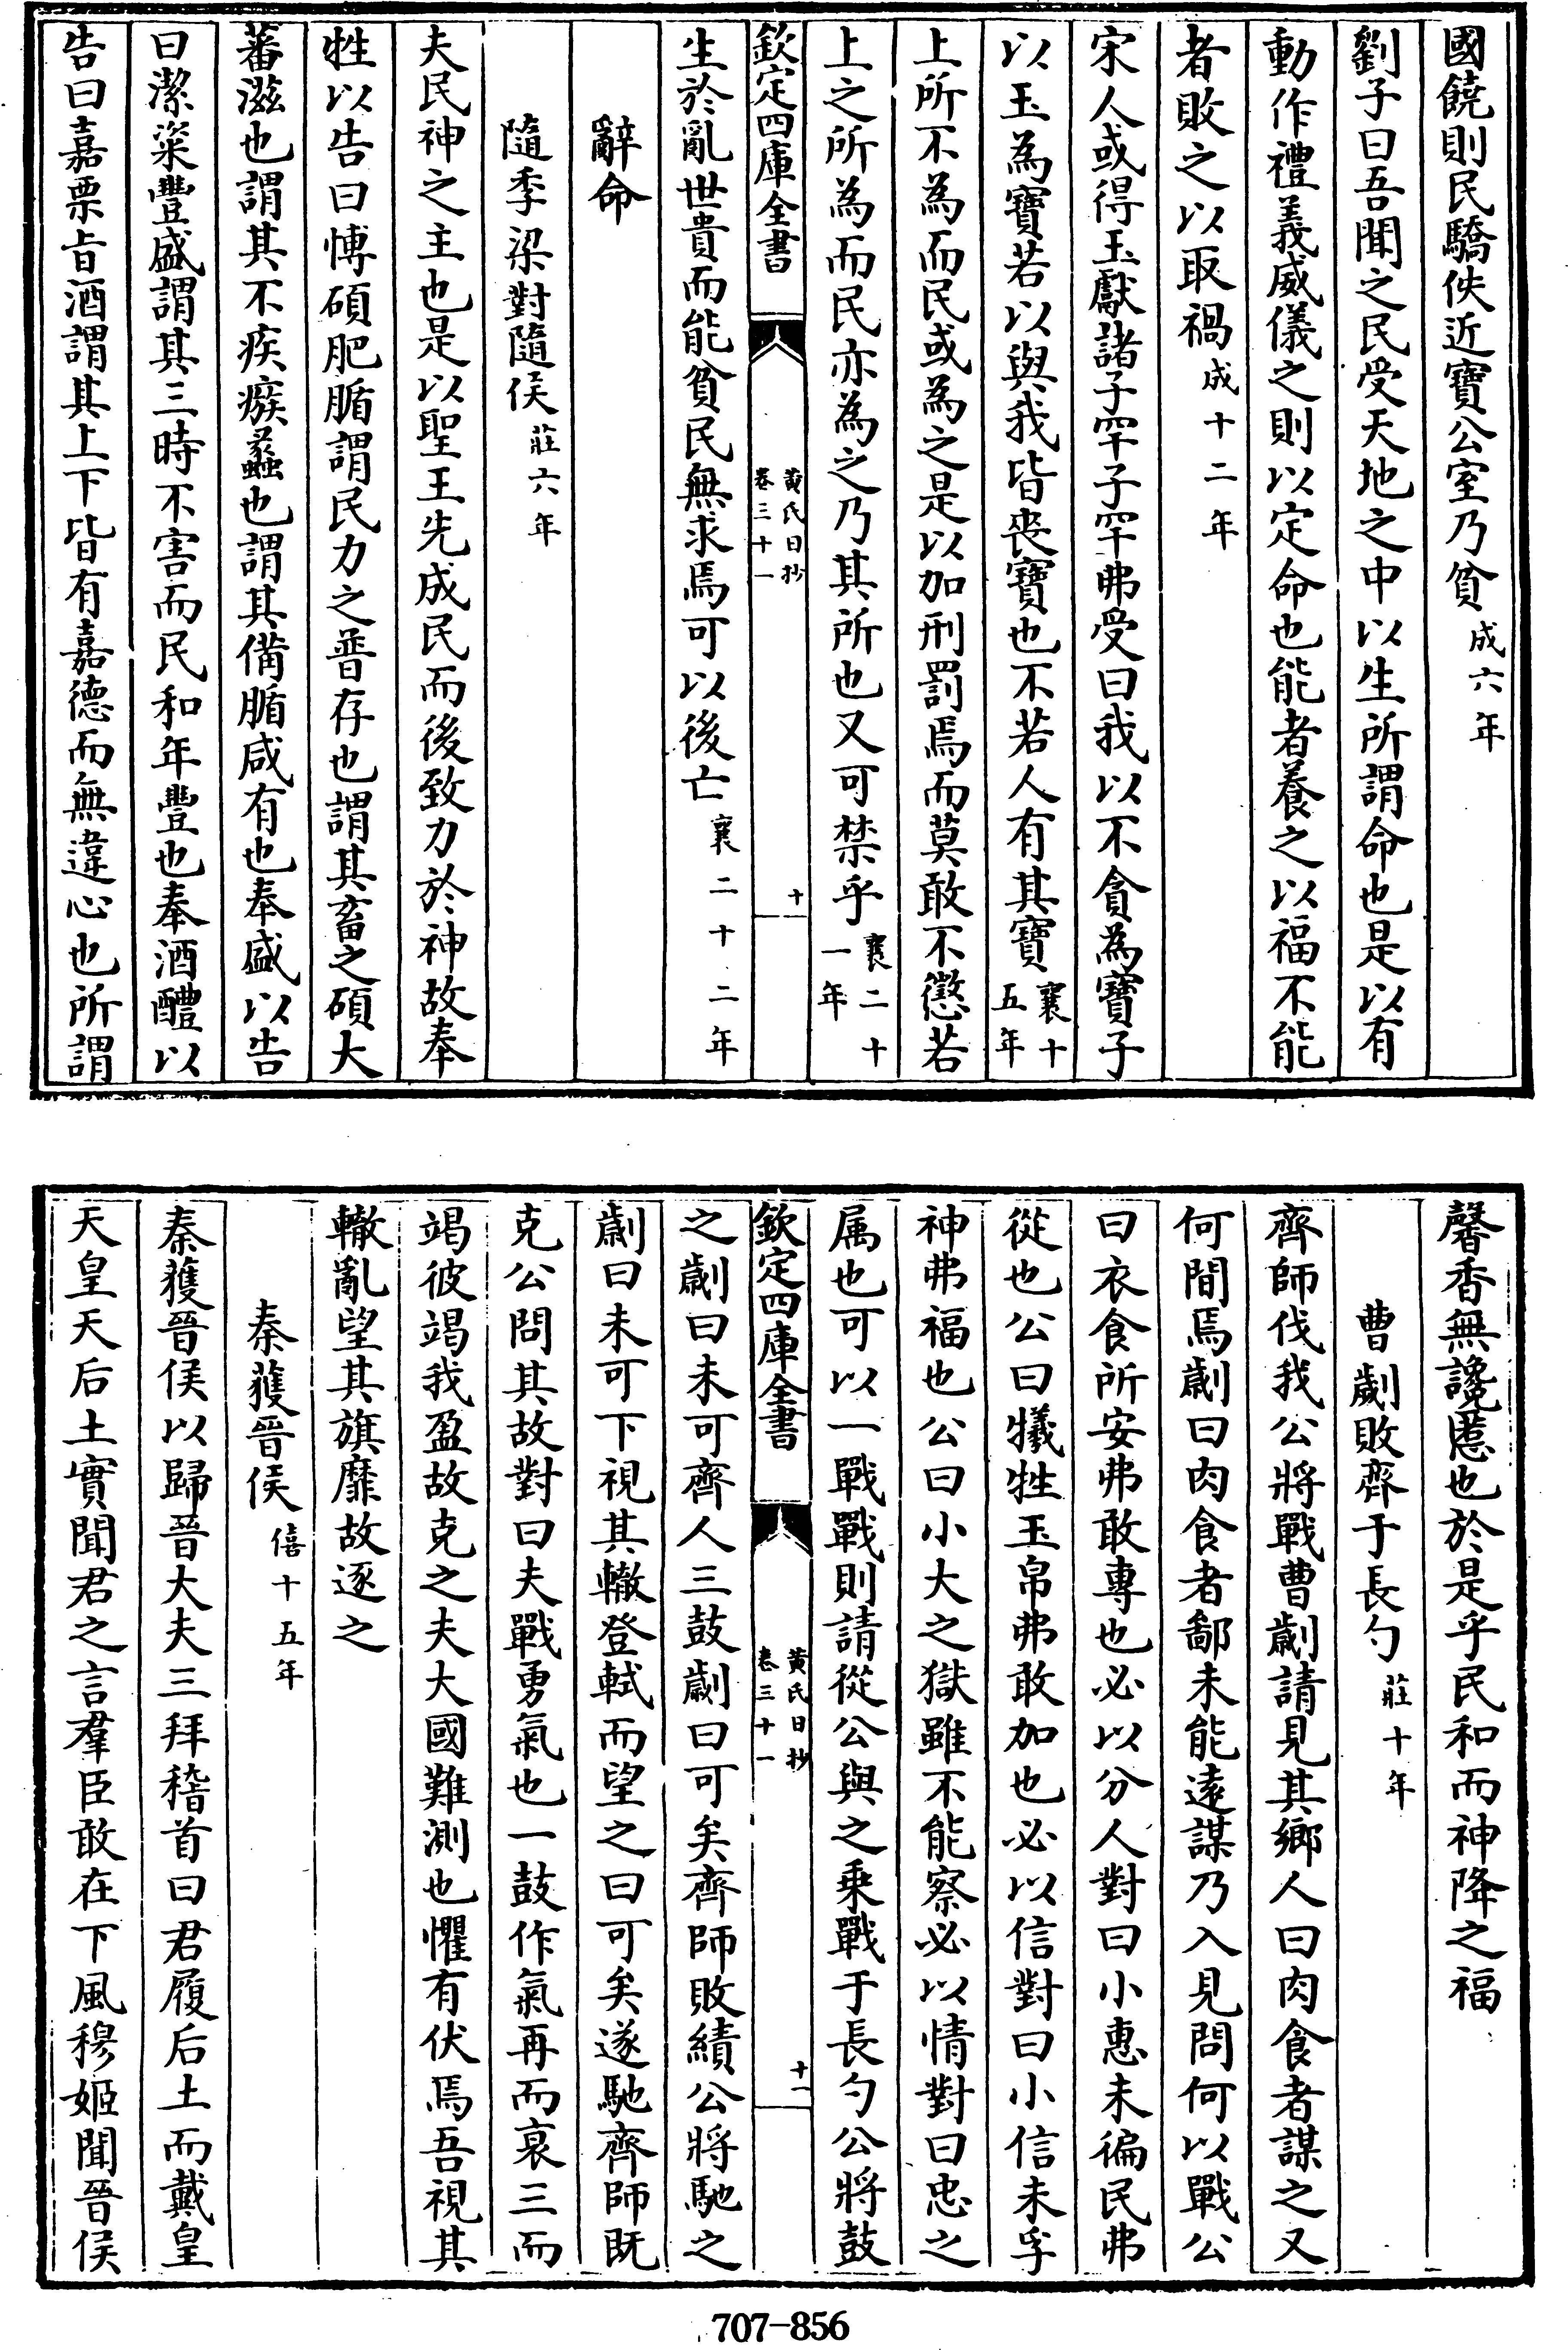 國饒則民驕佚近寶公室乃貧成六年
劉子曰吾聞之民受天地之中以生所謂命也是以有
動作禮義威儀之則以定命也能者養之以福不能
者敗之以取禍成十二年
宋人或得玉獻諸子罕子罕弗受曰我以不貪為寶子
以玉為寶若以與我皆喪寶也不若人有其寶襄十五年
上所不為而民或為之是以加刑罰焉而莫敢不懲若
上之所為而民亦為之乃其所也又可禁乎襄二十一年
欽定四庫全書 黃氏日抄卷三十一 十
生於亂世貴而能貧民無求焉可以後亡襄二十二年
辭命
隨季梁對隨侯莊六年
夫民神之主也是以聖王先成民而後致力於神故奉
牲以告曰博碩肥腯謂民力之普存也謂其畜之碩大
蕃滋也謂其不疾瘯蠡也謂其備腯咸有也奉盛以告
曰潔粢豐盛謂其三時不害而民和年豐也奉酒醴以
告曰嘉栗旨酒謂其上下皆有嘉德而無違心也所謂
馨香無讒慝也於是乎民和而神降之福
曹劌敗齊于長勺莊十年
齊師伐我公將戰曹劌請見其鄉人曰肉食者謀之又
何間焉劌曰肉食者鄙未能遠謀乃入見問何以戰公
曰衣食所安弗敢專也必以分人對曰小惠未徧民弗
從也公曰犧牲玉帛弗敢加也必以信對曰小信未孚
神弗福也公曰小大之獄雖不能察必以情對曰忠之
属也可以一戰戰則請從公與之乗戰于長勺公將鼓
欽定四庫全書 黃氏日抄卷三十一 十一
之劌曰未可齊人三鼓劌曰可矣齊師敗績公將馳之
劌曰未可下視其轍登軾而望之曰可矣遂馳齊師既
克公問其故對曰夫戰勇氣也一鼓作氣再而衰三而
竭彼竭我盈故克之夫大國難測也懼有伏焉吾視其
轍亂望其旗靡故逐之
秦獲晉侯僖十五年
秦獲晉侯以歸晉大夫三拜稽首曰君履后土而戴皇
天皇天后土實聞君之言羣臣敢在下風穆姬聞晉侯
707-856